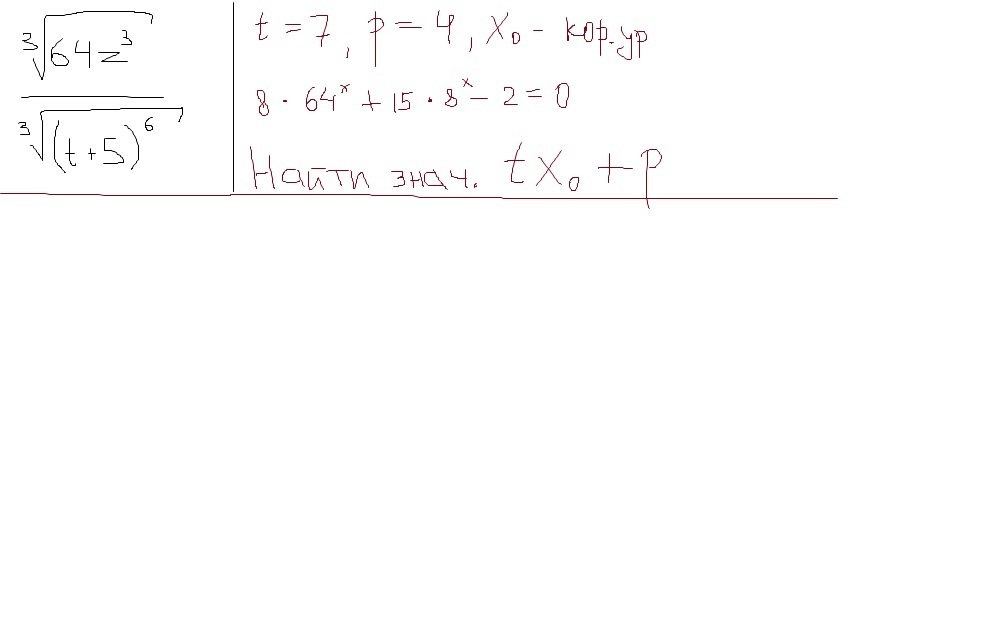 ∛(64z³)
∛((t+5)⁶)
t = 7, p = 4, x₀ - кор. ур
8 · 64ˣ + 15 · 8ˣ - 2 = 0
Найти знач. tx₀ + p